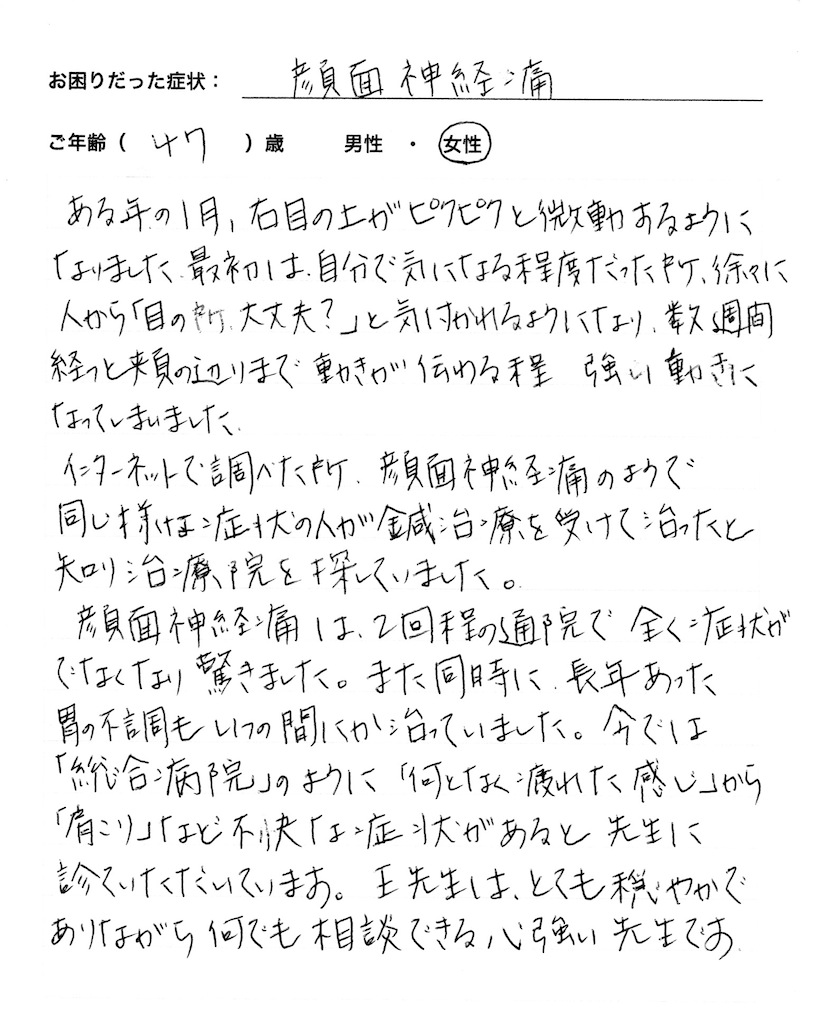 お困りだった症状： 顔面神経痛
ご年齢（ 47 ）歳 男性 ・ 女性
ある年の1月、右目の上がピクピクと微動するように
なりました。最初は、自分で気になる程度だった所、徐々に
人から「目の所、大丈夫？」と気付かれるようになり、数週間
経つと頬の辺りまで動きが伝わる程 強い動きに
なってしまいました。
インターネットで調べた所、顔面神経痛のようで
同じ様な症状の人が鍼治療を受けて治ったと
知り治療院を探していました。
顔面神経痛は、2回程の通院で 全く症状が
でなくなり驚きました。また同時に、長年あった
胃の不調もいつの間にか治っていました。今では
「総合病院」のように「何となく疲れた感じ」から
「肩こり」など不快な症状があると先生に
診ていただいています。王先生は、とても穏やかで
ありながら何でも相談できる心強い先生です。